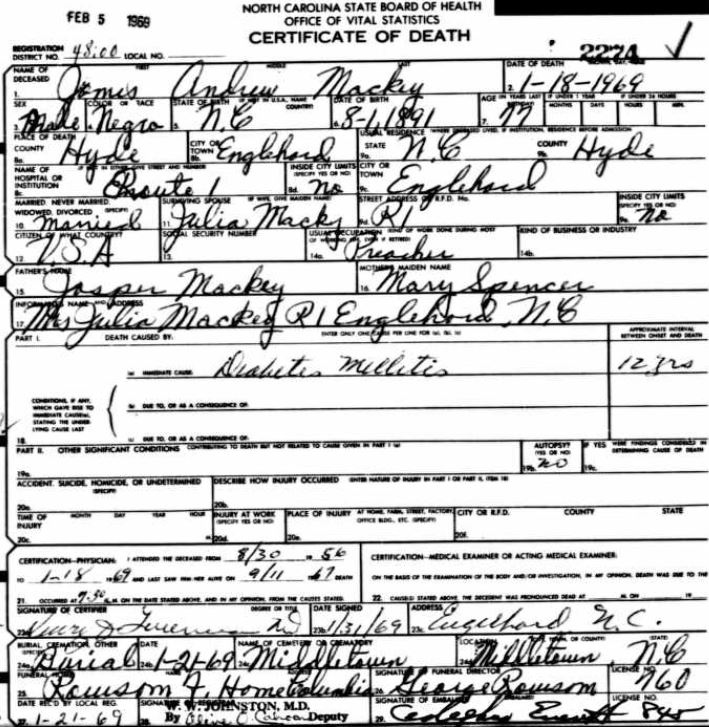 FEB 5 1969
NORTH CAROLINA STATE BOARD OF HEALTH
OFFICE OF VITAL STATISTICS
CERTIFICATE OF DEATH
REGISTRATION DISTRICT NO. 48:00 LOCAL NO. 2274
NAME OF DECEASED FIRST MIDDLE LAST DATE OF DEATH
1. James Andrew Mackey 2. 1-18-1969
SEX COLOR OR RACE STATE OF BIRTH (IF NOT IN U.S.A., NAME COUNTRY) DATE OF BIRTH AGE (IN YEARS LAST BIRTHDAY) IF UNDER 1 YEAR IF UNDER 24 HOURS
MONTHS DAYS HOURS MIN.
3. Male 4. Negro 5. N.C 6. 8-1-1891 7. 77
PLACE OF DEATH USUAL RESIDENCE (WHERE DECEASED LIVED, IF INSTITUTION, RESIDENCE BEFORE ADMISSION)
COUNTY CITY OR TOWN STATE COUNTY
8a. Hyde 8b. Englehard 9a. N.C 9b. Hyde
NAME OF HOSPITAL OR INSTITUTION (IF NOT IN EITHER, GIVE STREET AND NUMBER) INSIDE CITY LIMITS (SPECIFY YES OR NO) CITY OR TOWN
8c. Route 1 8d. No 9c. Englehard
MARRIED, NEVER MARRIED, WIDOWED, DIVORCED (SPECIFY) SURVIVING SPOUSE (IF WIFE, GIVE MAIDEN NAME) STREET ADDRESS OR R.F.D. No. INSIDE CITY LIMITS (SPECIFY YES OR NO)
10. Married 11. Julia Macky 9d. R1 9e. No
CITIZEN OF WHAT COUNTRY? SOCIAL SECURITY NUMBER USUAL OCCUPATION (KIND OF WORK DONE DURING MOST OF WORKING LIFE, EVEN IF RETIRED) KIND OF BUSINESS OR INDUSTRY
12. U.S.A 13. 14a. Preacher 14b.
FATHER'S NAME MOTHER'S MAIDEN NAME
15. Jasper Mackey 16. Mary Spencer
INFORMANT'S NAME AND ADDRESS
17. Mrs Julia Mackey R1 Englehard, N.C
PART I. DEATH CAUSED BY: ENTER ONLY ONE CAUSE PER LINE FOR (a), (b), (c) APPROXIMATE INTERVAL BETWEEN ONSET AND DEATH
(a) IMMEDIATE CAUSE Diabetes Mellitis 12 yrs
CONDITIONS, IF ANY, WHICH GAVE RISE TO IMMEDIATE CAUSE(a), STATING THE UNDERLYING CAUSE LAST
(b) DUE TO, OR AS A CONSEQUENCE OF:
18. (c) DUE TO, OR AS A CONSEQUENCE OF:
PART II. OTHER SIGNIFICANT CONDITIONS CONTRIBUTING TO DEATH BUT NOT RELATED TO CAUSE GIVEN IN PART I (a) AUTOPSY? (YES OR NO) IF YES WERE FINDINGS CONSIDERED IN DETERMINING CAUSE OF DEATH
19a. 19b. NO 19c.
ACCIDENT, SUICIDE, HOMICIDE, OR UNDETERMINED (SPECIFY) DESCRIBE HOW INJURY OCCURRED (ENTER NATURE OF INJURY IN PART I OR PART II, ITEM 18)
20a. 20b.
TIME OF INJURY MONTH DAY YEAR HOUR INJURY AT WORK (SPECIFY YES OR NO) PLACE OF INJURY AT HOME, FARM, STREET, FACTORY, OFFICE BLDG., ETC. (SPECIFY) CITY OR R.F.D. COUNTY STATE
20c. M 20d. 20e. 20f.
CERTIFICATION—PHYSICIAN: I ATTENDED THE DECEASED FROM 8/30 19 56 CERTIFICATION—MEDICAL EXAMINER OR ACTING MEDICAL EXAMINER:
TO 1-18 1969 AND LAST SAW HIM/HER ALIVE ON 9/11 1967 DEATH ON THE BASIS OF THE EXAMINATION OF THE BODY AND/OR INVESTIGATION, IN MY OPINION, DEATH WAS DUE TO THE
21. OCCURRED AT 7:30 A.M. ON THE DATE STATED ABOVE, AND IN MY OPINION, FROM THE CAUSES STATED. 22. CAUSE(S) STATED ABOVE. THE DECEDENT WAS PRONOUNCED DEAD AT M. ON 19
SIGNATURE OF CERTIFIER DEGREE OR TITLE DATE SIGNED ADDRESS
23b. 1/31/69 23c. Englehard N.C.
BURIAL, CREMATION, OTHER (SPECIFY) DATE NAME OF CEMETERY OR CREMATORY LOCATION (CITY, TOWN, OR COUNTY) (STATE)
24a. Burial 24b. 1-21-69 24c. Middletown 24d. Middletown, N.C
FUNERAL HOME SIGNATURE OF FUNERAL DIRECTOR LICENSE NO.
25. Rowsom F. Home Columbia 26. George Rowsom 760
DATE REC'D BY LOCAL REG. SIGNATURE OF EMBALMER LICENSE NO.
27. 1-21-69 28. JOHNSTON, M.D. By Deputy 29. 845